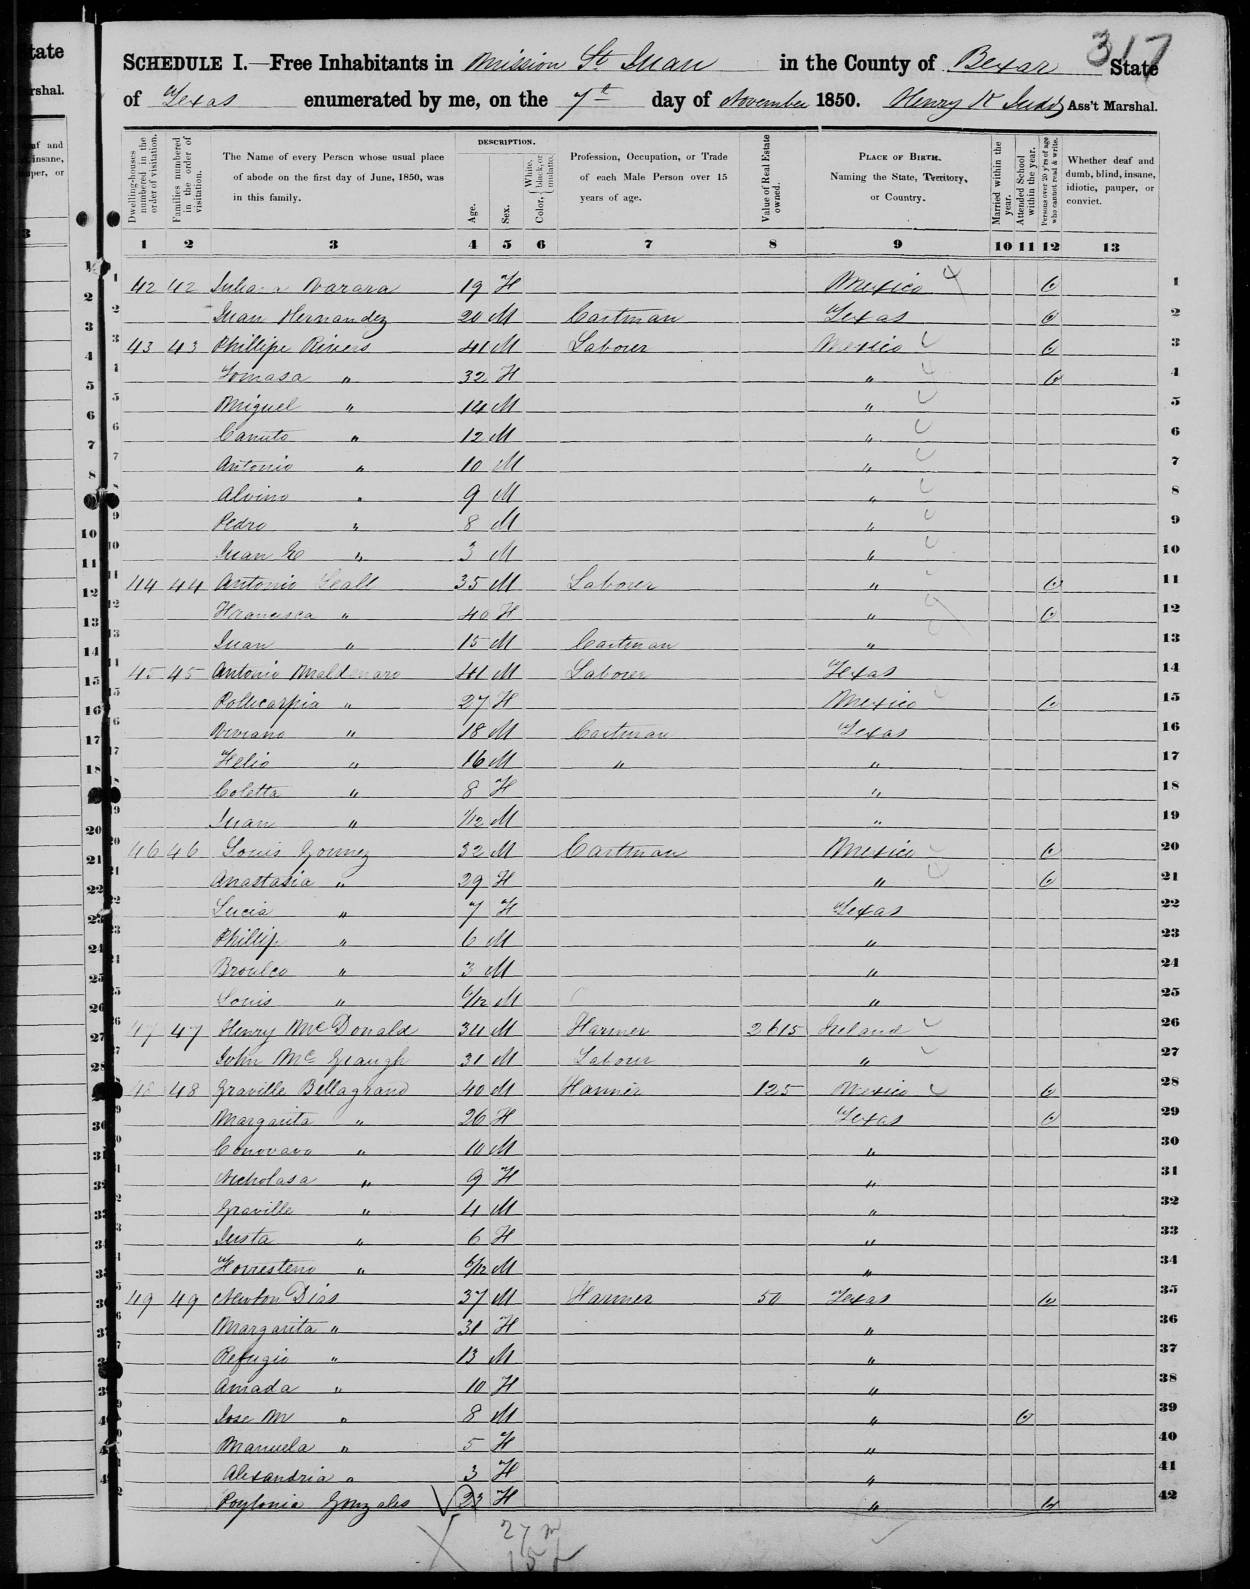 317
SCHEDULE I.—Free Inhabitants in Mission St Juan in the County of Bexar State
of Texas enumerated by me, on the 7th day of November 1850. Henry K Judd Ass't Marshal.
Dwelling-houses numbered in the order of visitation.
Families numbered in the order of visitation.
The Name of every Person whose usual place of abode on the first day of June, 1850, was in this family.
DESCRIPTION.
Age.
Sex.
Color, { White, black, or mulatto.
Profession, Occupation, or Trade of each Male Person over 15 years of age.
Value of Real Estate owned.
PLACE OF BIRTH.
Naming the State, Territory, or Country.
Married within the year.
Attended School within the year.
Persons over 20 y'rs of age who cannot read & write.
Whether deaf and dumb, blind, insane, idiotic, pauper, or convict.
1 2 3 4 5 6 7 8 9 10 11 12 13
1 42 42 19 F Mexico 1
2 Juan Hernandez 20 M Cartman Texas 2
3 43 43 Phillipe Rivers 41 M Laborer Mexico 3
4 Tomasa " 32 F " 4
5 Miguel " 14 M " 5
6 Canuto " 12 M " 6
7 Antonio " 10 M " 7
8 Alvino " 9 M " 8
9 Pedro " 8 M " 9
10 Juan E " 3 M " 10
11 44 44 Antonio Leall 35 M Laborer " 11
12 Francisca " 40 F " 12
13 Juan " 15 M Cartman " 13
14 45 45 Antonio 41 M Laborer Texas 14
15 Pollicarpia " 27 F Mexico 15
16 Viviano " 18 M Cartman Texas 16
17 Felio " 16 M " " 17
18 Coletta " 8 F " 18
19 Juan " 1/12 M " 19
20 46 46 Louis Gomez 32 M Cartman Mexico 20
21 Anastasia " 29 F " 21
22 Lucia " 7 F Texas 22
23 Phillip " 6 M " 23
24 Broulco " 3 M " 24
25 Louis " 6/12 M " 25
26 47 47 Henry McDonald 34 M Farmer 2615 Ireland 26
27 John Mc Geaugh 31 M Labour " 27
28 48 48 Graville Bellagrand 40 M Farmer 125 Mexico 28
29 Margarita " 26 F Texas 29
30 Conovavo " 10 M " 30
31 Nicholasa " 9 F " 31
32 Graville " 4 M " 32
33 Justa " 6 F " 33
34 " 6/12 M " 34
35 49 49 Newton Dias 37 M Farmer 50 Texas 35
36 Margarita " 31 F " 36
37 Refugio " 13 M " 37
38 Amada " 10 F " 38
39 Jose M " 8 M " 39
40 Manuela " 5 F " 40
41 Alexandria " 3 F " 41
42 Gonzales 23 F " 42
27 m
15 f